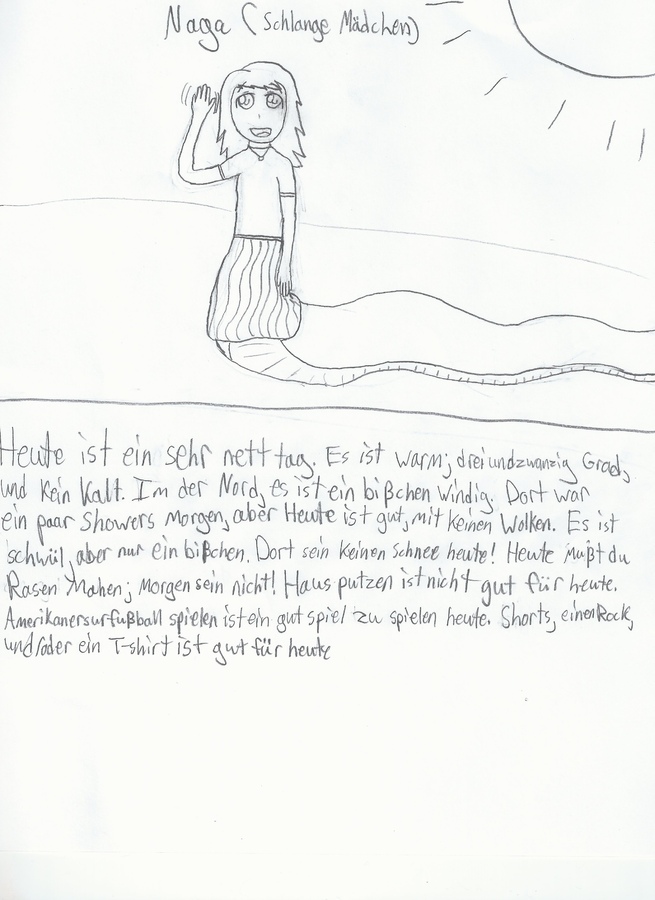 Naga (Schlange Mädchen)
Heute ist ein sehr nett tag. Es ist warm; dreiundzwanzig Grad,
und Kein Kalt. Im der Nord, es ist ein bißchen windig. Dort war
ein paar Showers Morgen, aber Heute ist gut, mit Keinen Wolken. Es ist
schwül, aber nur ein bißchen. Dort sein Keinen Schnee heute! Heute mußt du
Rasen Mahen; Morgen sein nicht! Haus putzen ist nicht gut für heute.
Amerikanersurfußball spielen ist ein gut spiel zu spielen heute. Shorts, einen Rock,
und/oder ein T-shirt ist gut für heute